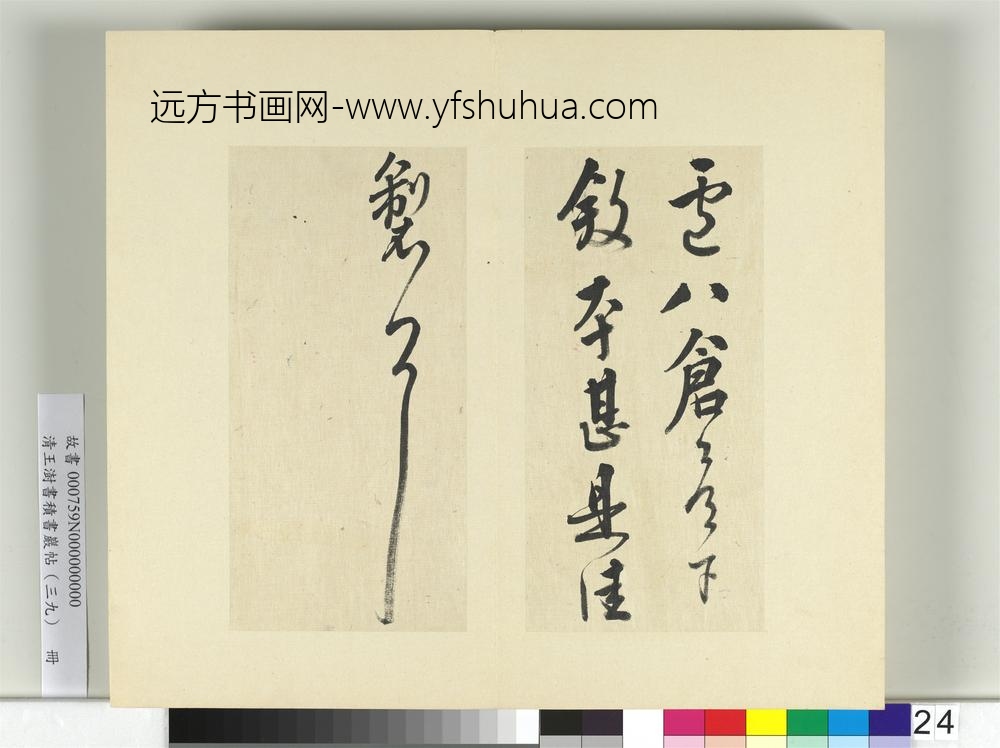 远方书画网-www.yfshuhua.com
八倉
敘本甚是佳
製
故書 000759N000000000
清王澍書積書巖帖(三九) 冊
24